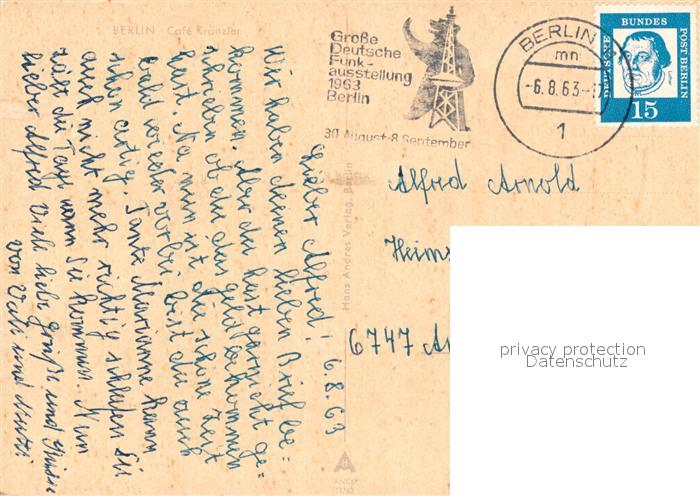 BERLIN Café Kranzler
Große
Deutsche
Funk-
ausstellung
1963
Berlin
30. August-8. September
BERLIN
mn
-6.8.63-17
1
DEUTSCHE BUNDES POST BERLIN
15
Alfred Arnold
Heims
6747 An
privacy protection
Datenschutz
Hans Andres Verlag, Berlin
ANCO
6.8.63
Lieber Alfred!
Wir haben deinen lieben Brief be=
kommen. Aber du hast garnicht ge=
schrieben ob du das Geld bekommen
hast. Na nun ist die schöne Zeit
bald wieder vorbei bist du auch
schön artig. Tante Marianne kann
auch nicht mehr richtig schlafen Sie
zält die Tage wann Sie kommen. Nun
lieber Alfred viele liebe Grüße und Küsse
von Vati und Mutti